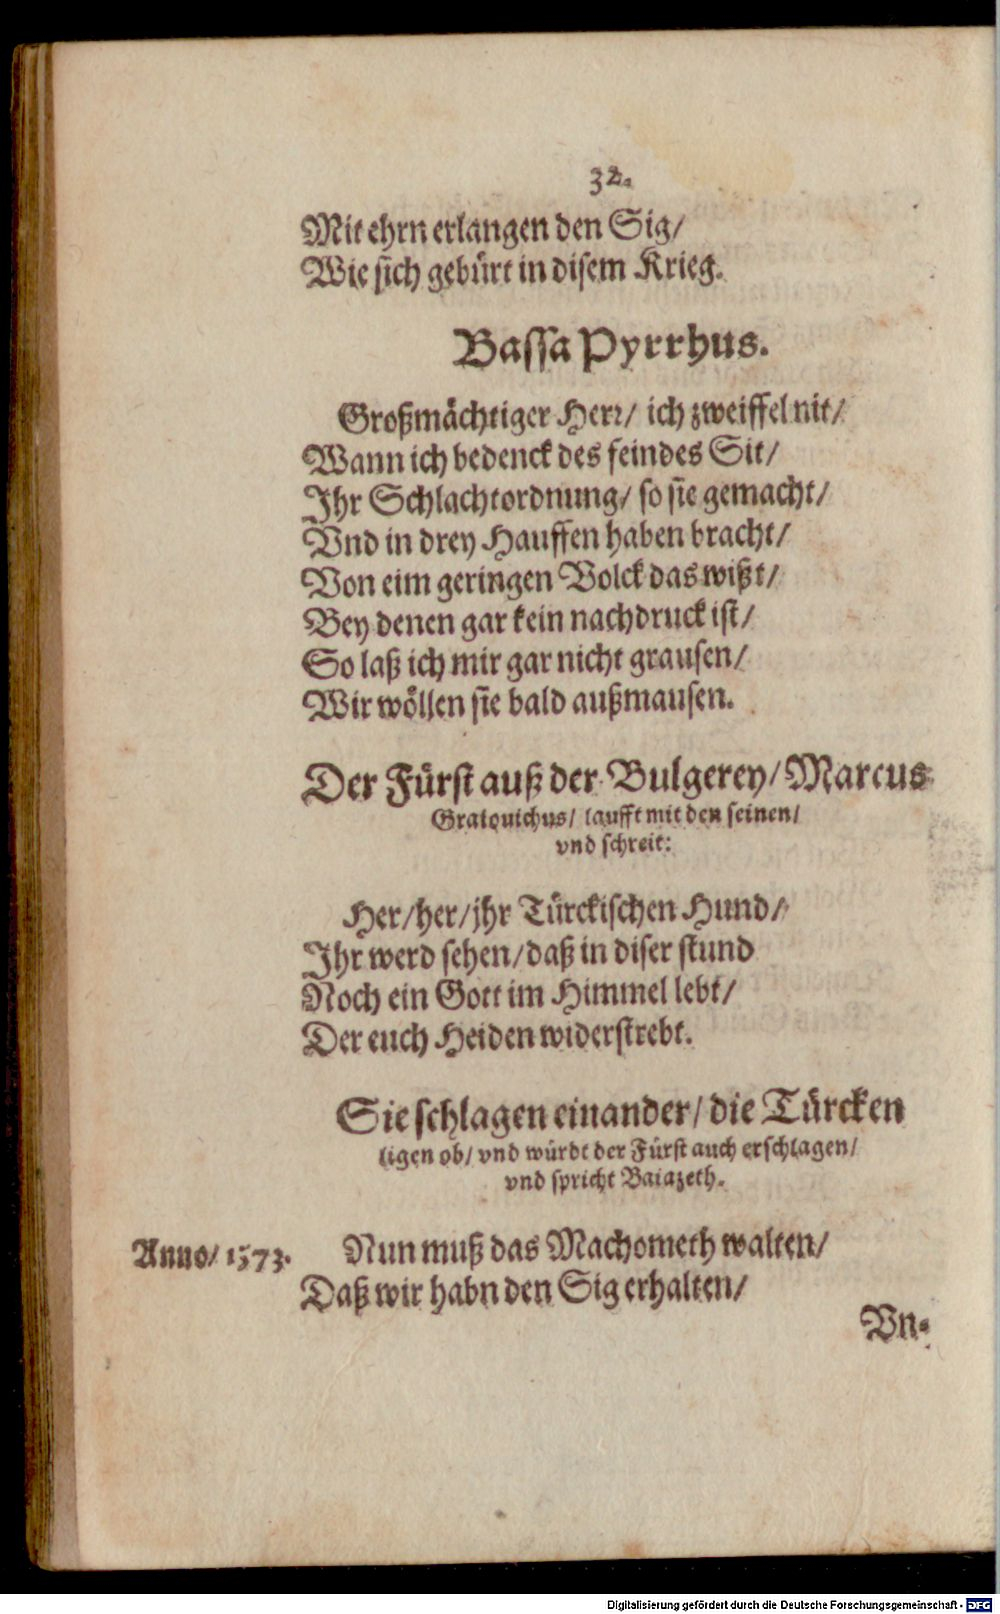 32.
Mit ehrn erlangen den Sig/
Wie sich gebürt in disem Krieg.
Bassa Pyrrhus.
Großmächtiger Herr/ ich zweiffel nit/
Wann ich bedenck des feindes Sit/
Ihr Schlachtordnung/ so sie gemacht/
Vnd in drey Hauffen haben bracht/
Von eim geringen Volck das wißt/
Bey denen gar kein nachdruck ist/
So laß ich mir gar nicht grausen/
Wir wöllen sie bald außmausen.
Der Fürst auß der Bulgerey/ Marcus
Gratouichus/ laufft mit den seinen/
vnd schreit:
Her/ her/ jhr Türckischen Hund/
Ihr werd sehen/ daß in diser stund
Noch ein Gott im Himmel lebt/
Der euch Heiden widerstrebt.
Sie schlagen einander/ die Türcken
ligen ob/ vnd würdt der Fürst auch erschlagen/
vnd spricht Baiazeth.
Anno/ 1573. Nun muß das Machometh walten/
Daß wir habn den Sig erhalten/
Vn-
Digitalisierung gefördert durch die Deutsche Forschungsgemeinschaft - DFG